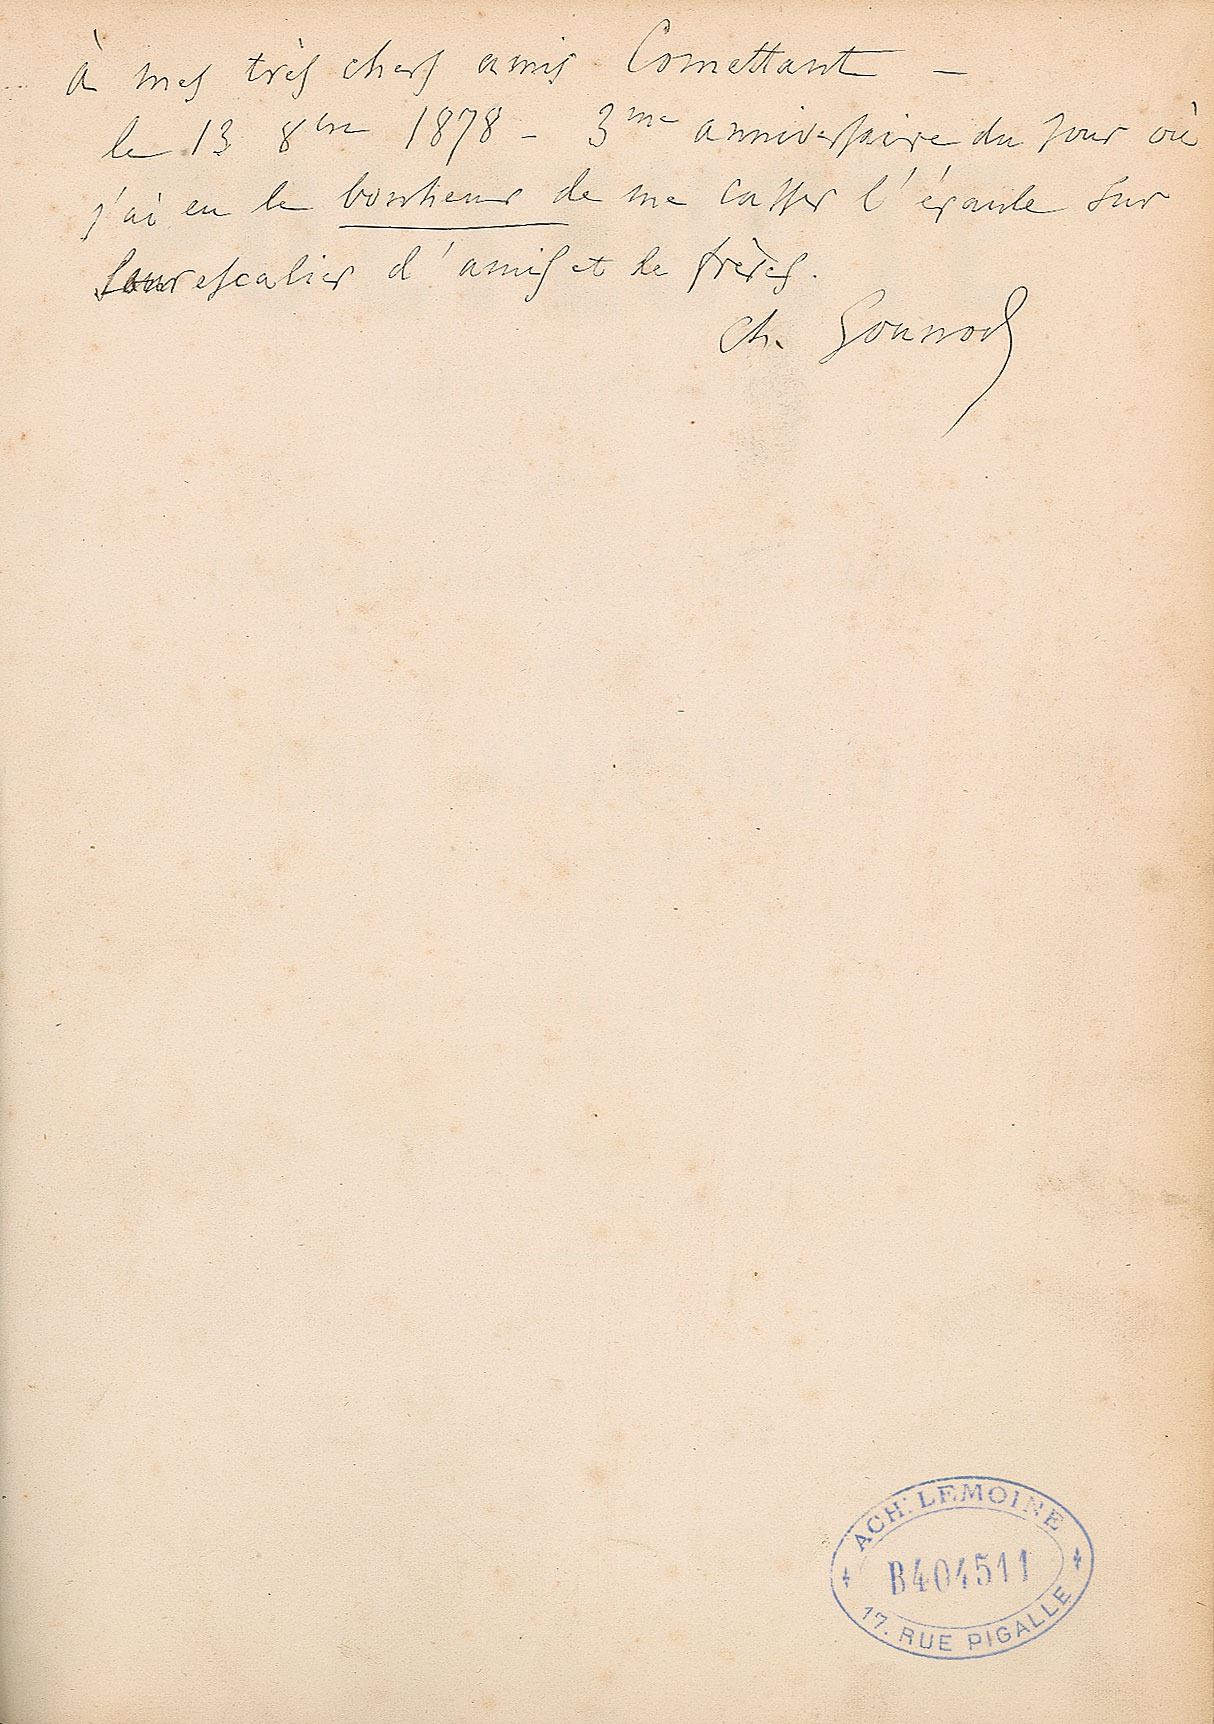 à mes très chers amis Comettant –
le 13 8bre 1878 – 3me anniversaire du jour où
j'ai eu le bonheur de me casser l'épaule sur
leur escalier d'amis et de frères.
Ch. Gounod
ACH. LEMOINE
B404511
17. RUE PIGALLE